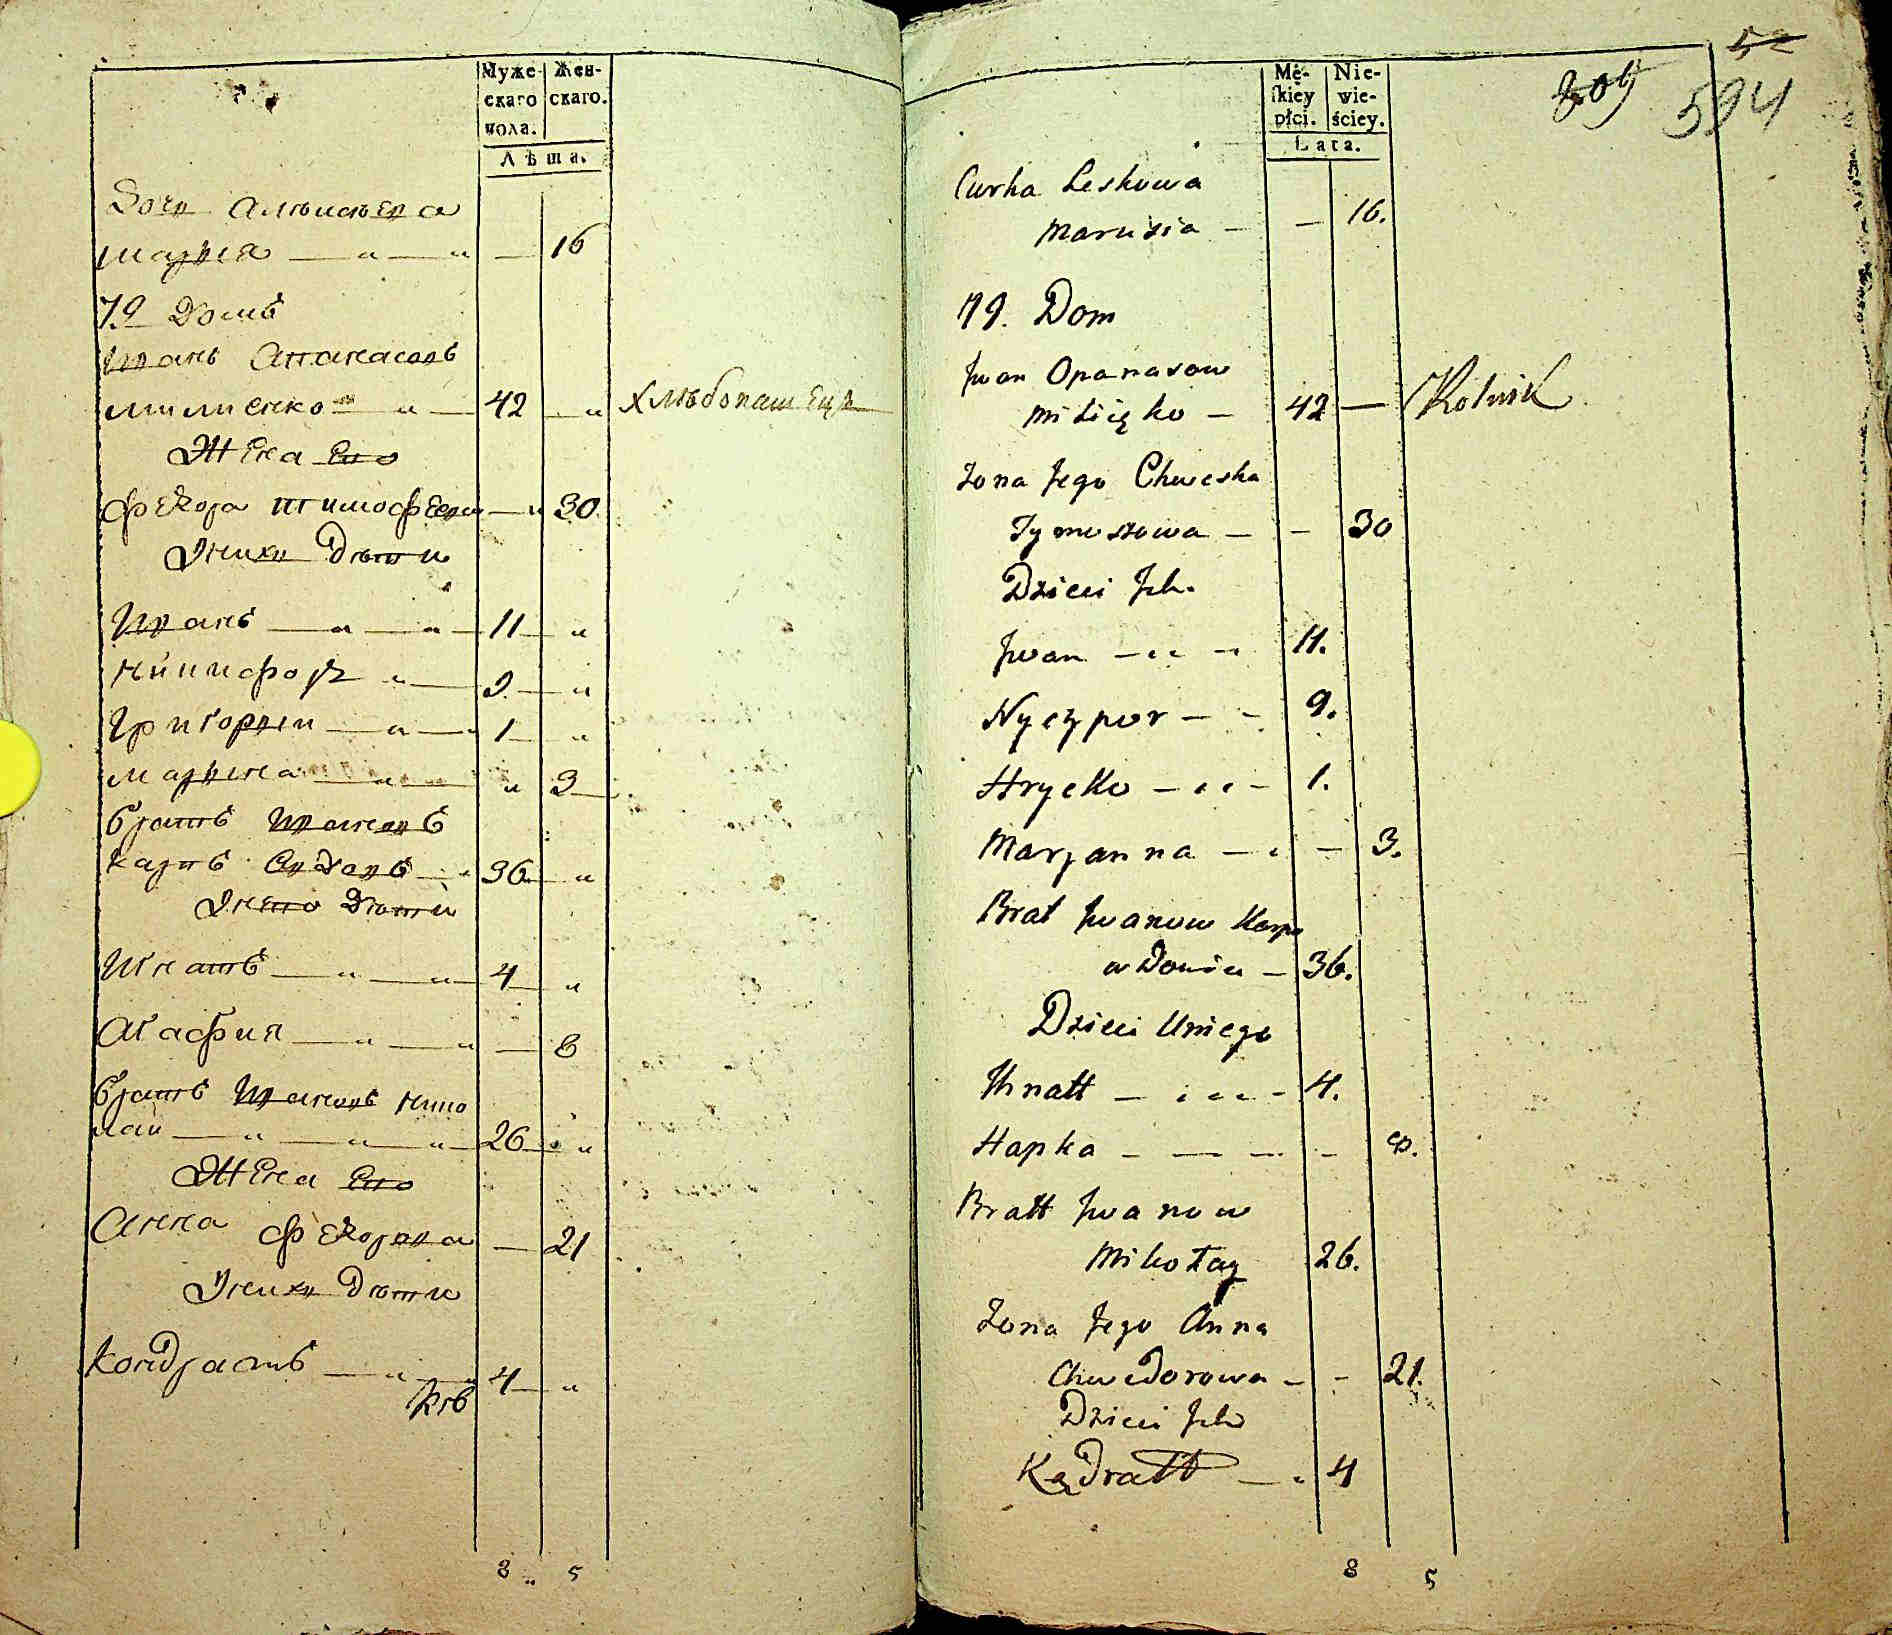 Муже-
скаго
пола.
Жен-
скаго.
Лѣта.
Дочь Алѣисѣева
Марья — „ — „ — 16
79 Домъ
Иванъ Апанасовъ
Милиенко — „ — 42 „ Хлѣбопашецъ
Жена Его
Феѣдора Тимофеева — „ 30
У нихъ Дѣти
Иванъ — „ — „ — 11 — „
Никифоръ „ — 9. — „
Григорий — „ — 1 — „
Марина — „ — „ 3
братъ Ивановъ
Карпъ вдовъ — „ 36 — „
У него Дѣти
Игнатъ — „ — „ 4 „
Агафия — „ — „ — 8
братъ Ивановъ Нико
лай — „ — „ — „ 26 — „
Жена Его
Анна Феѣдорова — 21
У нихъ Дѣти
Кондратъ — „ — „ 4 — „
8 „ 5
52
809
594
Mę-
skiey
płci.
Nie-
wie-
ściey.
Lata.
Curka Leskowa
Marusia — — 16.
79. Dom
Jwan Opanasow
Milięko — 42 — Rolnik
Zona Jego Chweska
Tymoszowa — — 30
Dzieci Jch.
Jwan — „ — 11.
Nyczypor — - 9.
Hrycko — „ - 1.
Marjanna — „ — 3.
Brat Jwanow Karpo
wdowiec — 36.
Dzieci Uniego
Jhnatt — „ „ - 4.
Hapka — — — - 8.
Bratt Jwanow
Mikołay 26.
Zona Jego Anna
Chwedorowa — - 21.
Dzieci Jch
Kądratt — „ 4
8 5